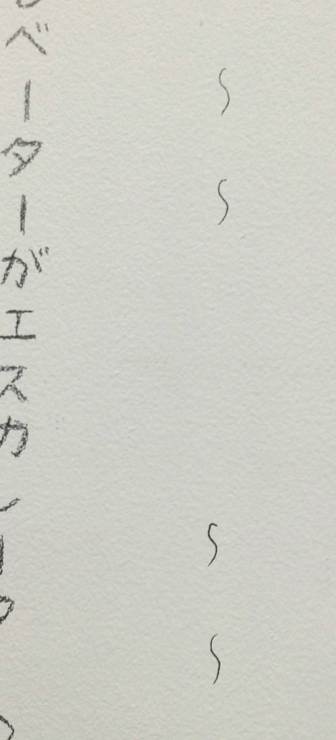 〜〜　〜〜
ベーターがエスカレー